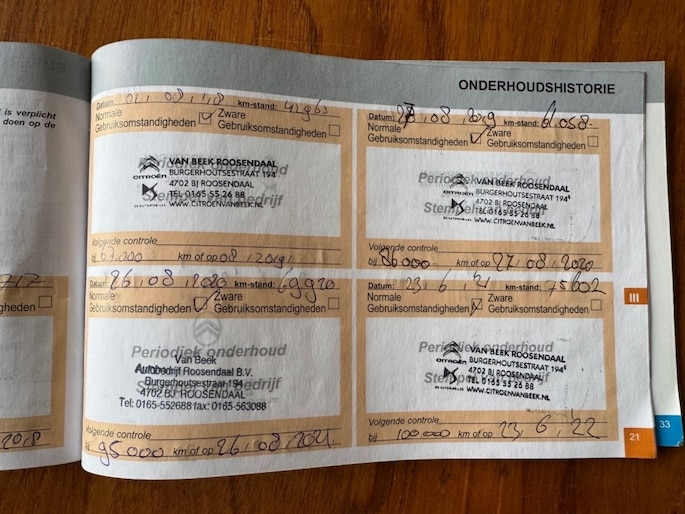 l is verplicht
doen op de
gheden
2018
ONDERHOUDSHISTORIE
Datum: 01.08.18 km-stand: 42963
Normale Gebruiksomstandigheden
Zware Gebruiksomstandigheden
Periodiek onderhoud
Stempel bedrijf
CITROËN
DS AUTOMOBILES
VAN BEEK ROOSENDAAL
BURGERHOUTSESTRAAT 194
4702 BJ ROOSENDAAL
TEL 0165 55 26 88
WWW.CITROENVANBEEK.NL
Volgende controle
bij 67.000 km of op 08.2019
Datum: 27.08.2019 km-stand: 61.058
Normale Gebruiksomstandigheden
Zware Gebruiksomstandigheden
Periodiek onderhoud
Stempel bedrijf
CITROËN
DS AUTOMOBILES
VAN BEEK ROOSENDAAL
BURGERHOUTSESTRAAT 194
4702 BJ ROOSENDAAL
TEL 0165 55 26 88
WWW.CITROENVANBEEK.NL
Volgende controle
bij 86000 km of op 27.08.2020
Datum: 26.08.2020 km-stand: 69920
Normale Gebruiksomstandigheden
Zware Gebruiksomstandigheden
Periodiek onderhoud
Stempel bedrijf
Van Beek
Autobedrijf Roosendaal B.V.
Burgerhoutsestraat 194
4702 BJ ROOSENDAAL
Tel: 0165-552688 fax: 0165-563088
Volgende controle
bij 95000 km of op 26.08.2021
Datum: 23.6.21 km-stand: 75602
Normale Gebruiksomstandigheden
Zware Gebruiksomstandigheden
Periodiek onderhoud
Stempel bedrijf
CITROËN
DS AUTOMOBILES
VAN BEEK ROOSENDAAL
BURGERHOUTSESTRAAT 194
4702 BJ ROOSENDAAL
TEL 0165 55 26 88
WWW.CITROENVANBEEK.NL
Volgende controle
bij 100000 km of op 23.6.22
III
21
33